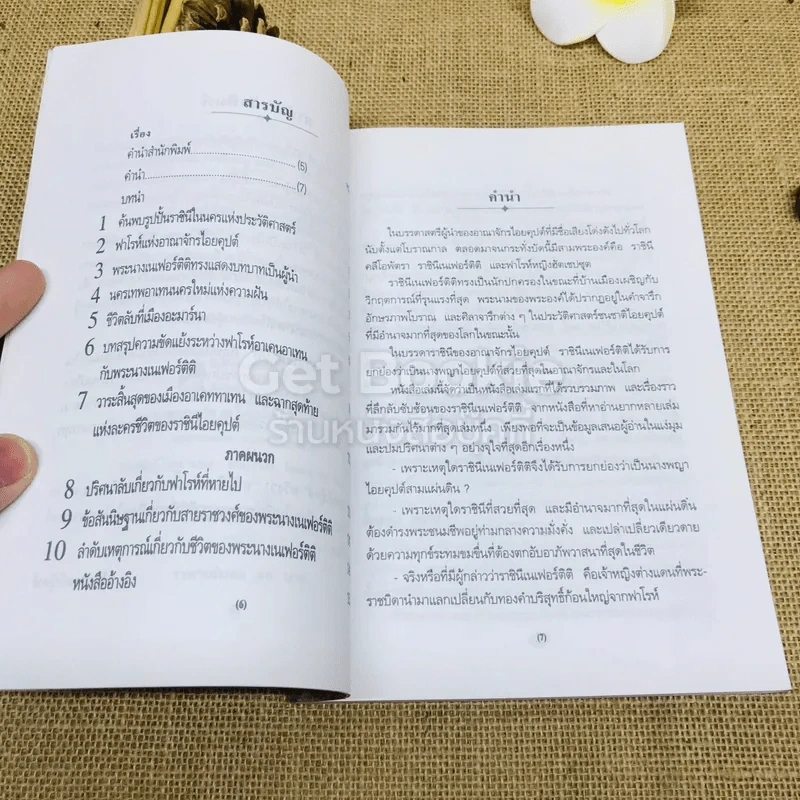 สารบัญ
เรื่อง
คำนำสำนักพิมพ์..............................(5)
คำนำ..............................(7)
บทนำ
1 ค้นพบรูปปั้นราชินีในนครแห่งประวัติศาสตร์
2 ฟาโรห์แห่งอาณาจักรไอยคุปต์
3 พระนางเนเฟอร์ติติทรงแสดงบทบาทเป็นผู้นำ
4 นครเทพอาเทนนครใหม่แห่งความฝัน
5 ชีวิตลับที่เมืองอะมาร์นา
6 บทสรุปความขัดแย้งระหว่างฟาโรห์อาเคนอาเทน
กับพระนางเนเฟอร์ติติ
7 วาระสิ้นสุดของเมืองอาเคททาเทน และฉากสุดท้าย
แห่งละครชีวิตของราชินีไอยคุปต์
ภาคผนวก
8 ปริศนาลับเกี่ยวกับฟาโรห์ที่หายไป
9 ข้อสันนิษฐานเกี่ยวกับสายราชวงศ์ของพระนางเนเฟอร์ติติ
10 ลำดับเหตุการณ์เกี่ยวกับชีวิตของพระนางเนเฟอร์ติติ
หนังสืออ้างอิง
(6)
คำนำ
ในบรรดาสตรีผู้นำของอาณาจักรไอยคุปต์ที่มีชื่อเสียงโด่งดังไปทั่วโลก
นับตั้งแต่โบราณกาล ตลอดมาจนกระทั่งบัดนี้มีสามพระองค์คือ ราชินี
คลีโอพัตรา ราชินีเนเฟอร์ติติ และฟาโรห์หญิงฮัตเชปซุต
ราชินีเนเฟอร์ติติทรงเป็นนักปกครองในขณะที่บ้านเมืองเผชิญกับ
วิกฤตการณ์ที่รุนแรงที่สุด พระนามของพระองค์ได้ปรากฏอยู่ในคำจารึก
อักษรภาพโบราณ และศิลาจารึกต่าง ๆ ในประวัติศาสตร์ชนชาติไอยคุปต์
ที่มีอำนาจมากที่สุดของโลกในขณะนั้น
ในบรรดาราชินีของอาณาจักรไอยคุปต์ ราชินีเนเฟอร์ติติได้รับการ
ยกย่องว่าเป็นนางพญาไอยคุปต์ที่สวยที่สุดในอาณาจักรและในโลก
หนังสือเล่มนี้จัดว่าเป็นหนังสือเล่มแรกที่ได้รวบรวมภาพ และเรื่องราว
ที่ลึกลับซับซ้อนของราชินีเนเฟอร์ติติ จากหนังสือที่หาอ่านยากหลายเล่ม
มารวมกันไว้มากที่สุดเล่มหนึ่ง เพียงพอที่จะเป็นข้อมูลเสนอผู้อ่านในแง่มุม
และปมปริศนาต่าง ๆ อย่างจุใจที่สุดอีกเรื่องหนึ่ง
- เพราะเหตุใดราชินีเนเฟอร์ติติจึงได้รับการยกย่องว่าเป็นนางพญา
ไอยคุปต์สามแผ่นดิน ?
- เพราะเหตุใดราชินีที่สวยที่สุด และมีอำนาจมากที่สุดในแผ่นดิน
ต้องดำรงพระชนมชีพอยู่ท่ามกลางความมั่งคั่ง และเปล่าเปลี่ยวเดียวดาย
ด้วยความทุกข์ระทมขมขื่นที่ต้องตกอับอาภัพวาสนาที่สุดในชีวิต
- จริงหรือที่มีผู้กล่าวว่าราชินีเนเฟอร์ติติ คือเจ้าหญิงต่างแดนที่พระ-
ราชบิดานำมาแลกเปลี่ยนกับทองคำบริสุทธิ์ก้อนใหญ่จากฟาโรห์
(7)